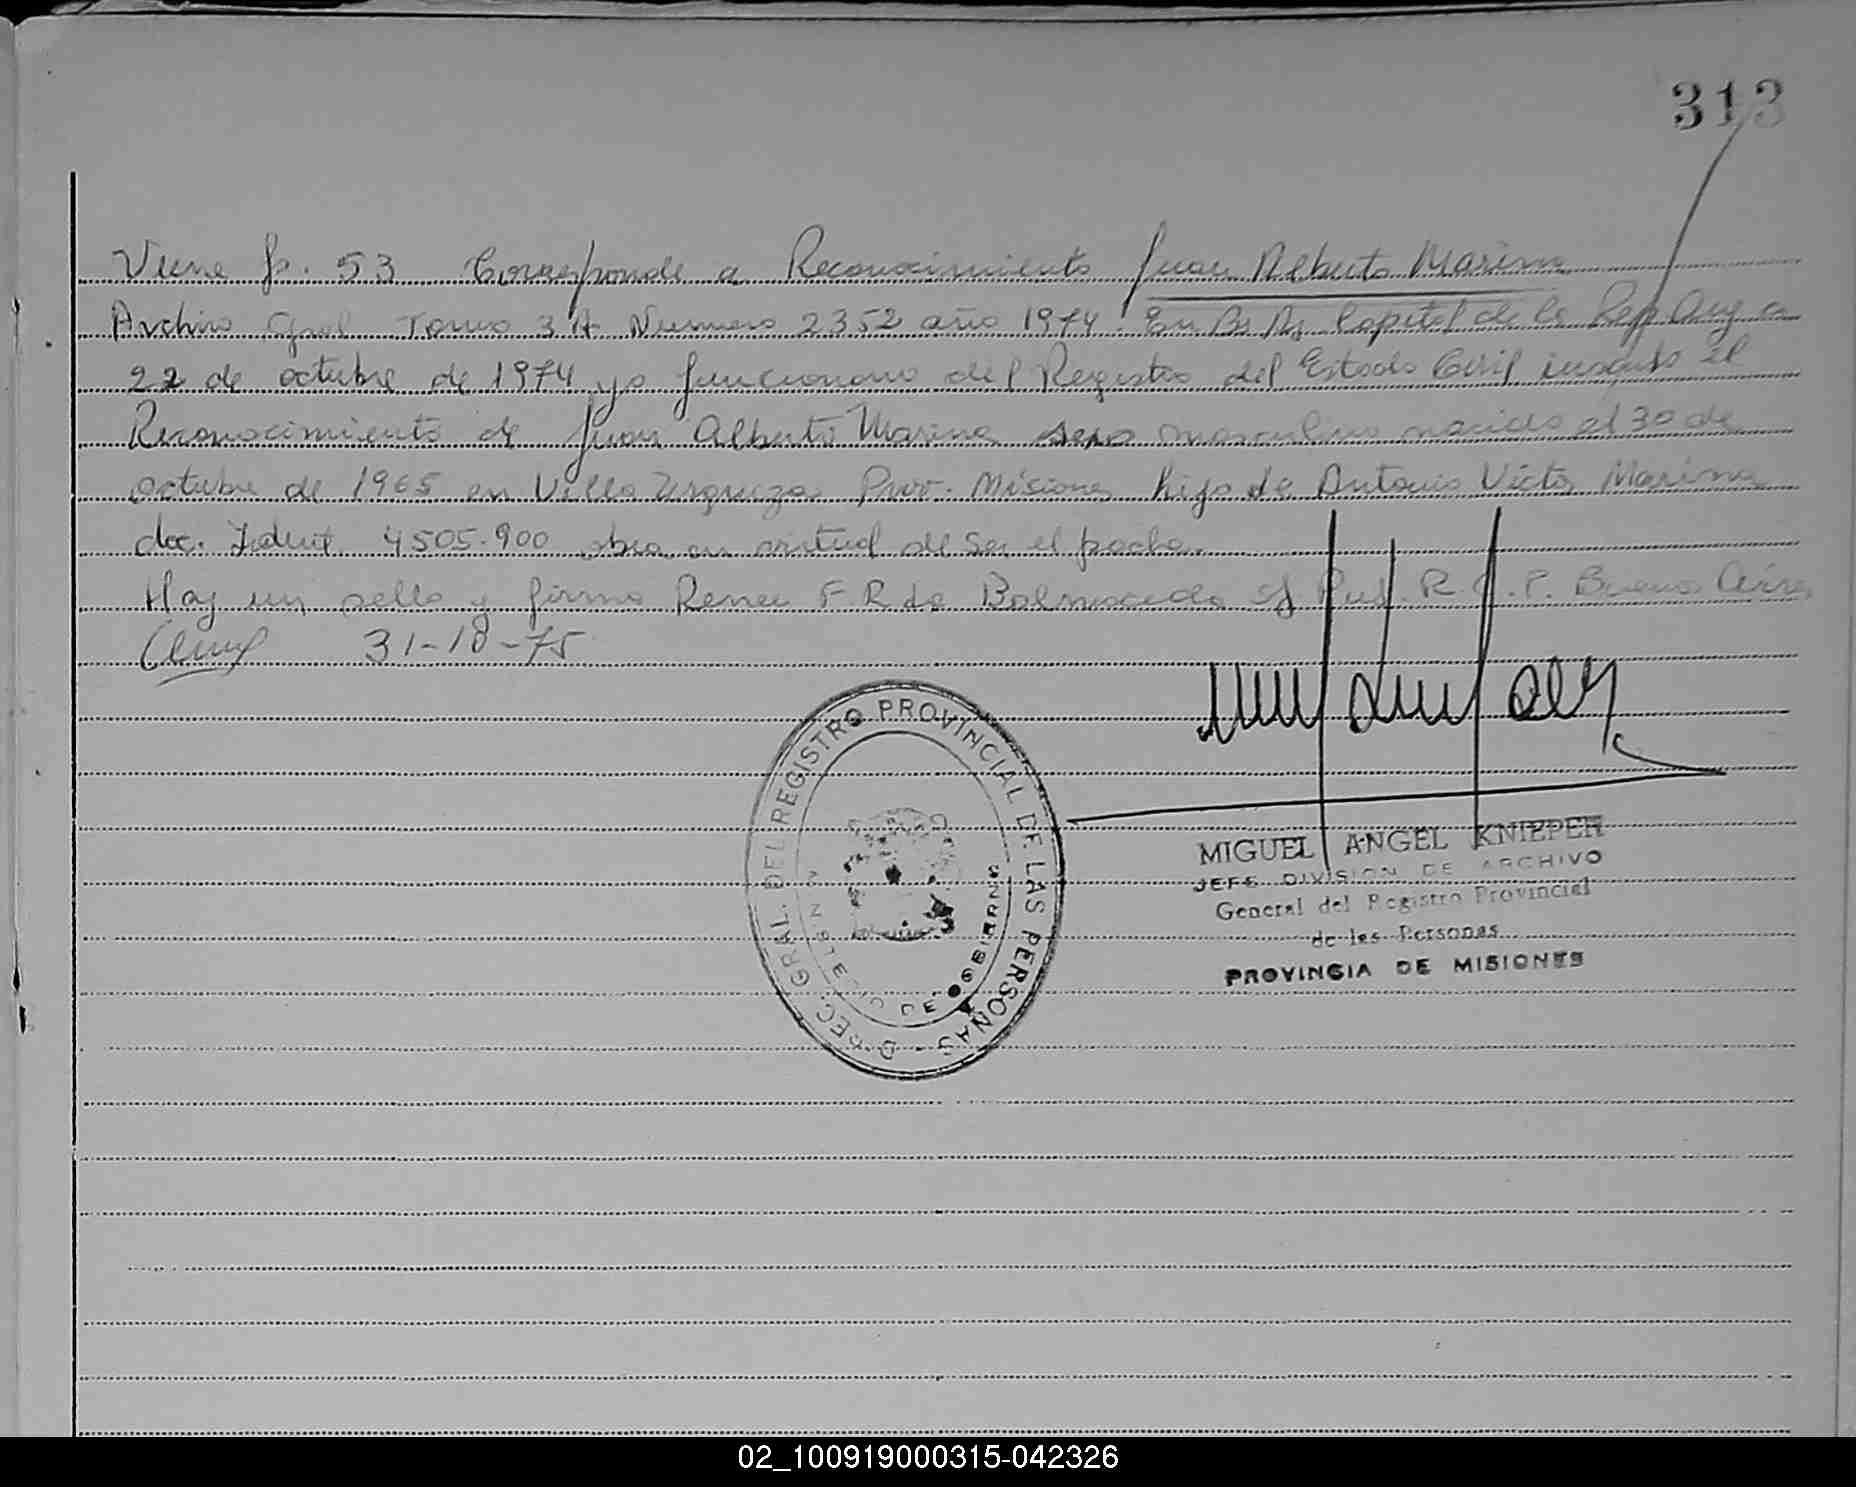 313
Viene fo. 53 Corresponde a Reconocimiento Juan Alberto Marina
Archivo Gral Tomo 3 A Numero 2352 año 1974. En Bs As Capital de la Rep Arg a
22 de octubre de 1974 yo funcionario del Registro del Estado Civil inscribo el
Reconocimiento de Juan Alberto Marina sexo masculino nacido el 30 de
octubre de 1965 en Villa Urquiza Prov. Misiones hijo de Antonio Victor Marina
doc. Ident. 4505.900 obra en virtud de ser el padre.
Hay un sello y firma Renee F R de Balmaceda R. C. P. Buenos Aires
31-10-75
DIREC. GRAL. DEL REGISTRO PROVINCIAL DE LAS PERSONAS
MINISTERIO DE GOBIERNO
MIGUEL ANGEL KNIEPER
JEFE DIVISION DE ARCHIVO
General del Registro Provincial
de las Personas
PROVINCIA DE MISIONES
02_100919000315-042326